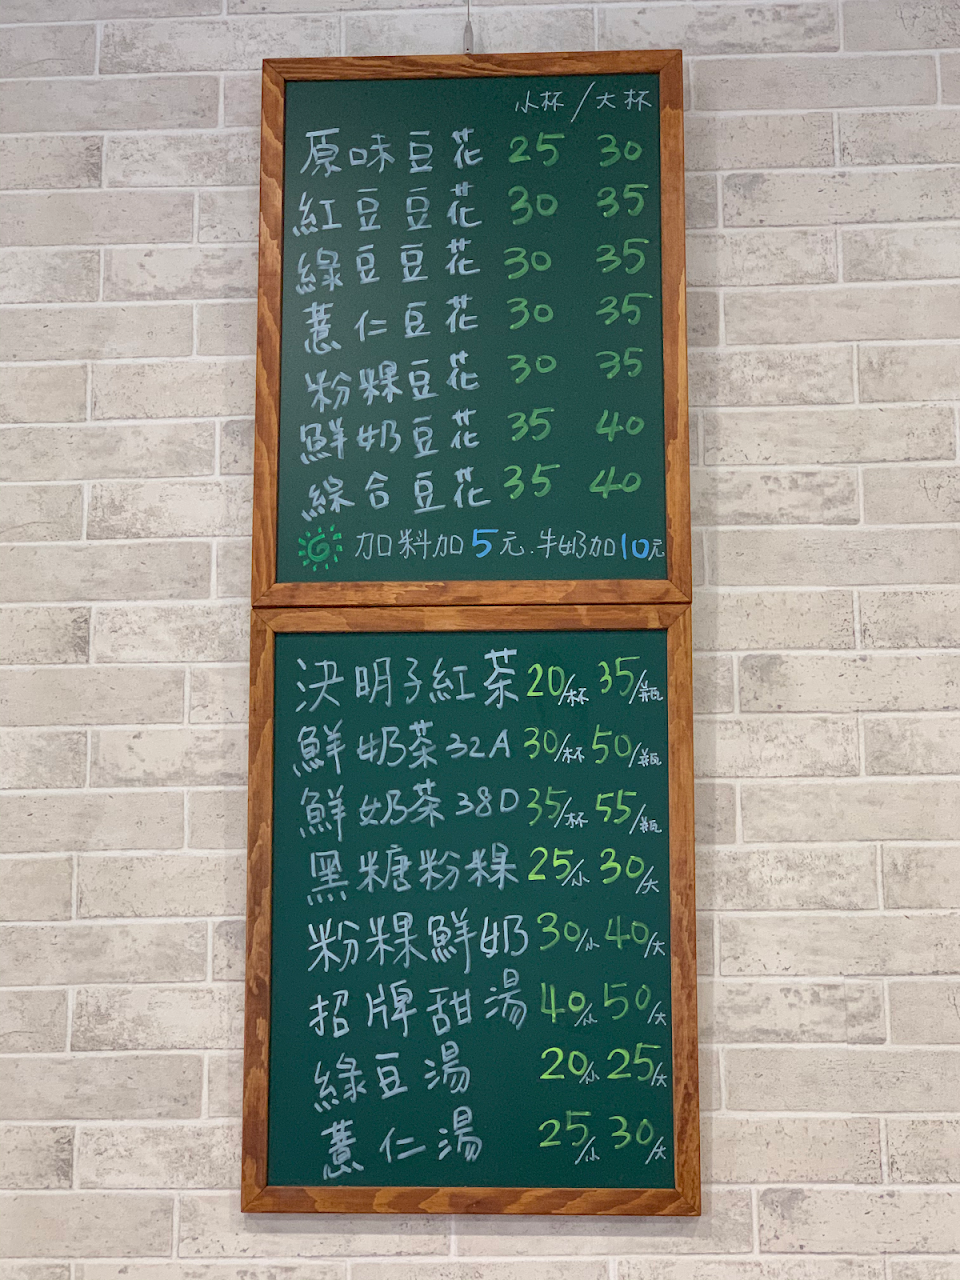 小杯/大杯
原味豆花 25 30
紅豆豆花 30 35
綠豆豆花 30 35
薏仁豆花 30 35
粉粿豆花 30 35
鮮奶豆花 35 40
綜合豆花 35 40
加料加5元.牛奶加10元
決明子紅茶 20/杯 35/瓶
鮮奶茶32A 30/杯 50/瓶
鮮奶茶38D 35/杯 55/瓶
黑糖粉粿 25/小 30/大
粉粿鮮奶 30/小 40/大
招牌甜湯 40/小 50/大
綠豆湯 20/小 25/大
薏仁湯 25/小 30/大